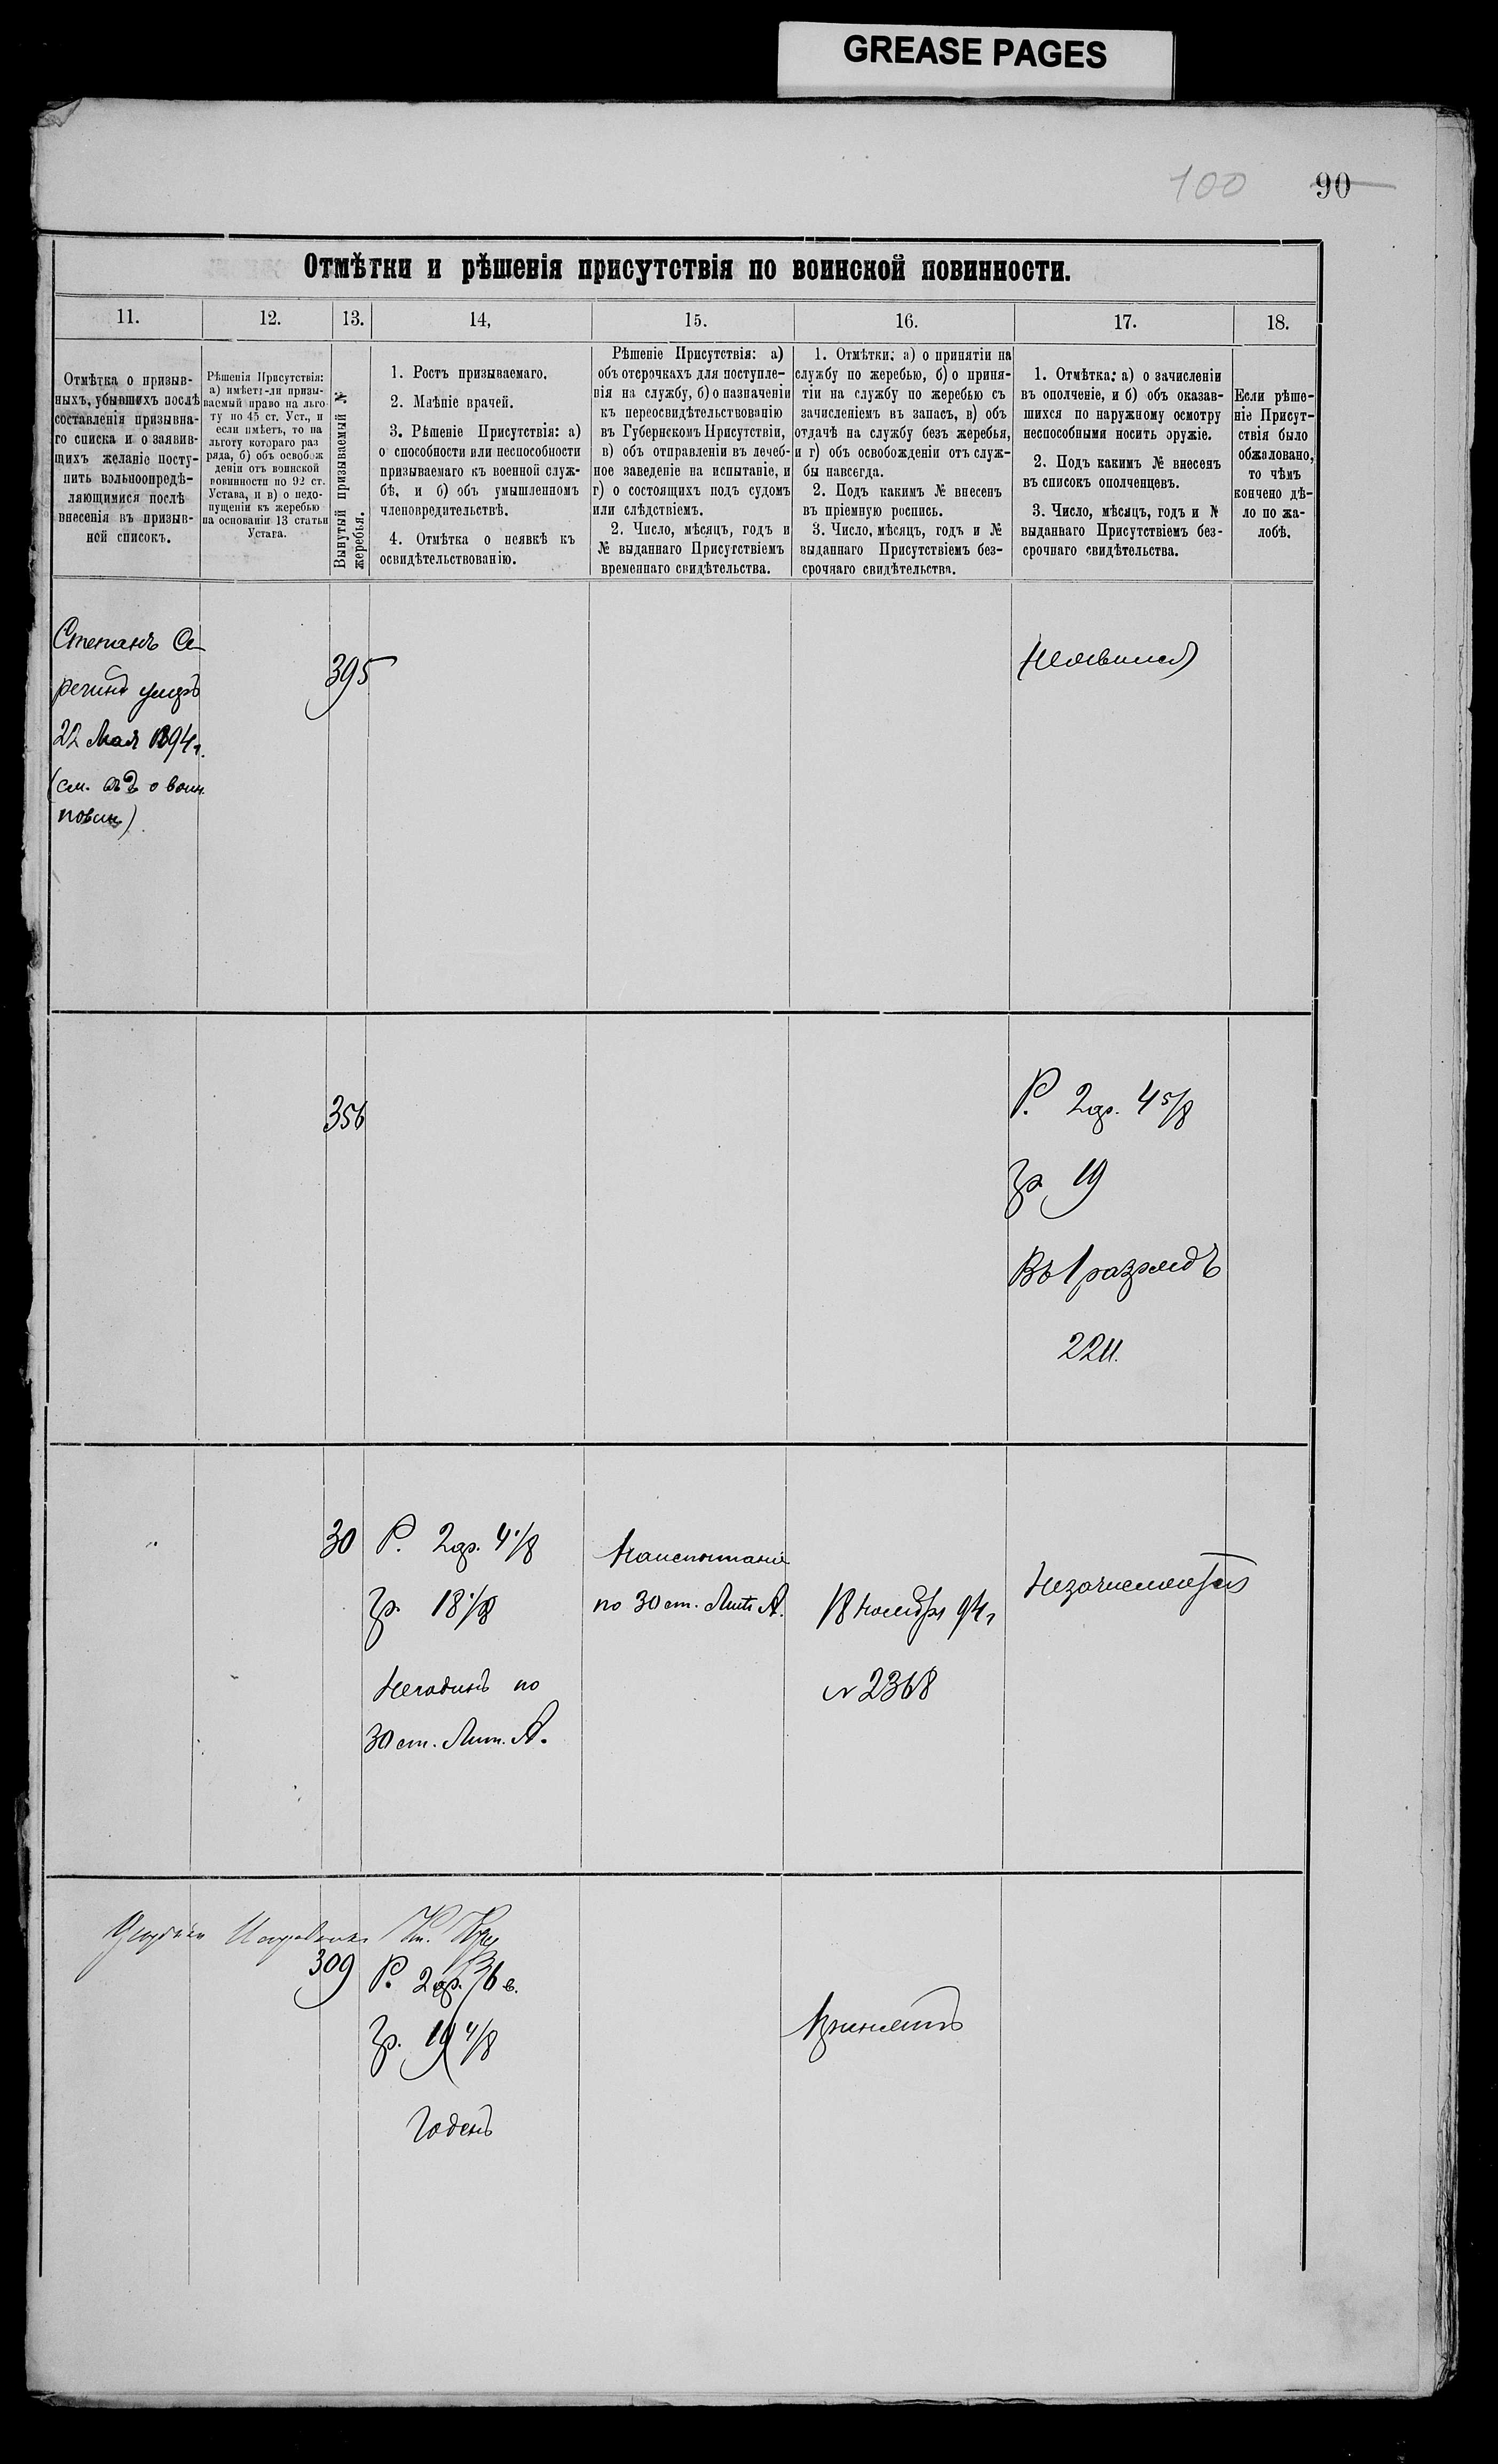 GREASE PAGES
100 90
Отмѣтки и рѣшенія присутствія по воинской повинности.
11. 12. 13. 14, 15. 16. 17. 18.
Отмѣтка о призыв-
ныхъ, убывшихъ послѣ
составленія призывна-
го списка и о заявив-
щихъ желаніе посту-
пить вольноопредѣ-
ляющимися послѣ
внесенія въ призыв-
ной списокъ.
Рѣшенія Присутствія:
а) имѣетъ-ли призы-
ваемый право на льго-
ту по 45 ст. Уст., и
если имѣетъ, то на
льготу котораго раз
ряда, б) объ освобож
деніи отъ воинской
повинности по 92 ст.
Устава, и в) о недо-
пущеніи къ жеребью
на основаніи 13 статьи
Устава.
Вынутый призываемый №
жеребья.
1. Ростъ призываемаго.
2. Мнѣніе врачей.
3. Рѣшеніе Присутствія: а)
о способности или неспособности
призываемаго къ военной служ-
бѣ, и б) объ умышленномъ
членовредительствѣ.
4. Отмѣтка о неявкѣ къ
освидѣтельствованію.
Рѣшеніе Присутствія: а)
объ отсрочкахъ для поступле-
нія на службу, б) о назначеніи
къ переосвидѣтельствованію
въ Губернскомъ Присутствіи,
в) объ отправленіи въ лечеб-
ное заведеніе на испытаніе, и
г) о состоящихъ подъ судомъ
или слѣдствіемъ.
2. Число, мѣсяцъ, годъ и
№ выданнаго Присутствіемъ
временнаго свидѣтельства.
1. Отмѣтки: а) о принятіи на
службу по жеребью, б) о приня-
тіи на службу по жеребью съ
зачисленіемъ въ запасъ, в) объ
отдачѣ на службу безъ жеребья,
и г) объ освобожденіи отъ служ-
бы навсегда.
2. Подъ какимъ № внесенъ
въ пріемную роспись.
3. Число, мѣсяцъ, годъ и №
выданнаго Присутствіемъ без-
срочнаго свидѣтельства.
1. Отмѣтка: а) о зачисленіи
въ ополченіе, и б) объ оказав-
шихся по наружному осмотру
неспособными носить оружіе.
2. Подъ какимъ № внесенъ
въ списокъ ополченцевъ.
3. Число, мѣсяцъ, годъ и №
выданнаго Присутствіемъ без-
срочнаго свидѣтельства.
Если рѣше-
ніе Присут-
ствія было
обжаловано,
то чѣмъ
кончено дѣ-
ло по жа-
лобѣ.
Степанъ Се-
речинъ умеръ
22 Мая 1894 г.
(см. о воин.
повин)
395
Неявился
356
Р. 2 ар. 4 5/8
Гр. 19
Въ 1 разрядъ
2211.
30
Р. 2 ар. 4 1/8
Гр. 18 1/8
Негодинъ по
30 ст. Лит. А.
по 30 ст. Лит. А.
18 Ноября 94 г
№ 2368
309
Р. 2 ар. 6 в.
Гр. 19 4/8
Годенъ
Принятъ